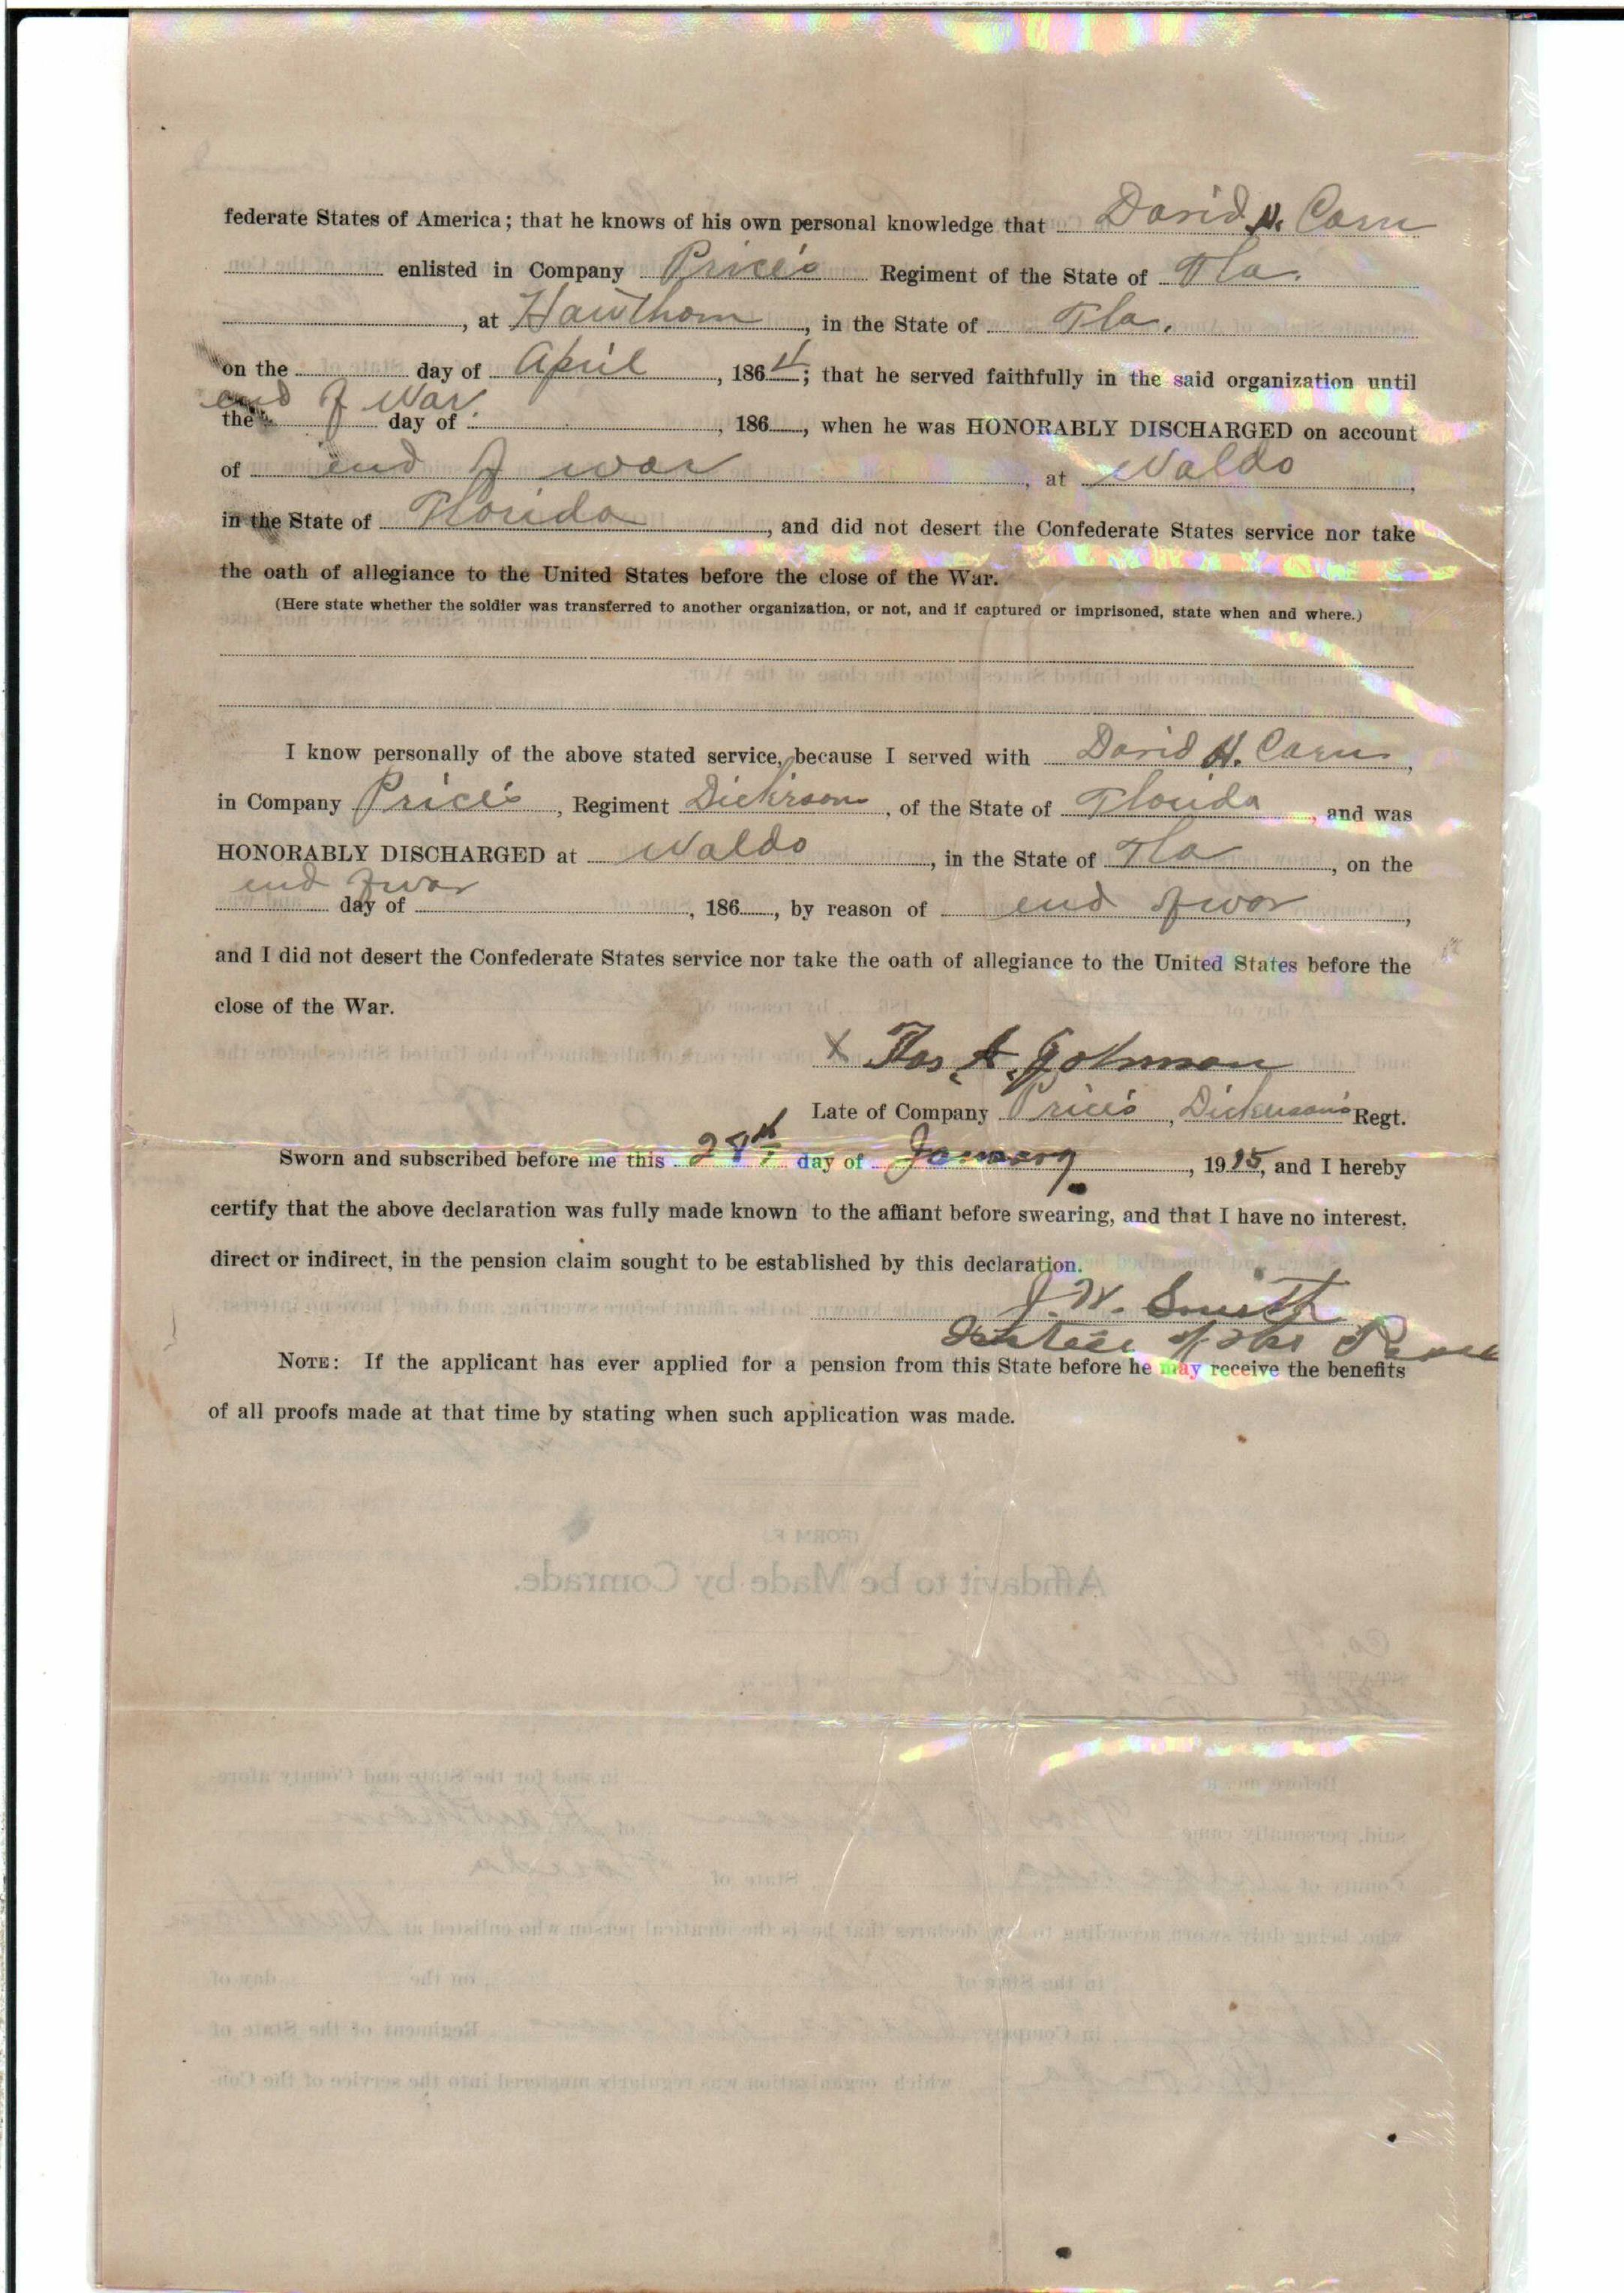 federate States of America; that he knows of his own personal knowledge that David H. Carn
enlisted in Company Price's Regiment of the State of Fla.
, at Hawthorn, in the State of Fla.
on the day of April, 1864; that he served faithfully in the said organization until
end of War.
the day of , 186 , when he was HONORABLY DISCHARGED on account
of end of war , at Waldo,
in the State of Florida, and did not desert the Confederate States service nor take
the oath of allegiance to the United States before the close of the War.
(Here state whether the soldier was transferred to another organization, or not, and if captured or imprisoned, state when and where.)
I know personally of the above stated service, because I served with David H. Carn,
in Company Price's, Regiment Dickison, of the State of Florida, and was
HONORABLY DISCHARGED at Waldo, in the State of Fla, on the
end of war
day of , 186 , by reason of end of war,
and I did not desert the Confederate States service nor take the oath of allegiance to the United States before the
close of the War.
X Thos A. Johnson
Late of Company Price's, Dickison's Regt.
Sworn and subscribed before me this 28th day of January, 1915, and I hereby
certify that the above declaration was fully made known to the affiant before swearing, and that I have no interest.
direct or indirect, in the pension claim sought to be established by this declaration.
J. W. Smith
Justice of the Peace
NOTE: If the applicant has ever applied for a pension from this State before he may receive the benefits
of all proofs made at that time by stating when such application was made.